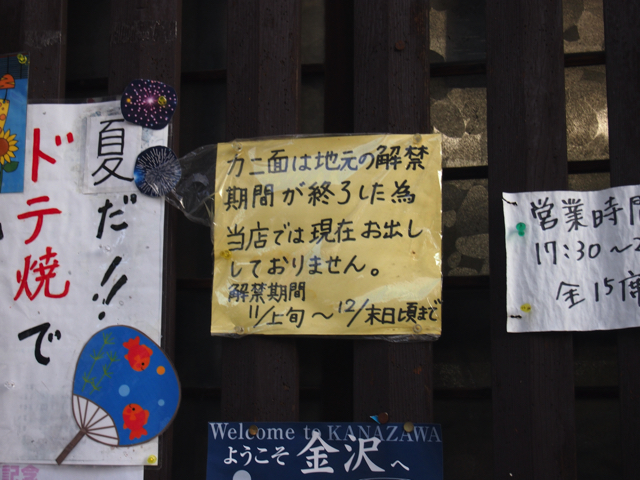 夏だ!!
ドテ焼で
カニ面は地元の解禁
期間が終了した為
当店では現在お出し
しておりません。
解禁期間
11/上旬～12/末日頃まで
営業時間
17:30～2
全15席
Welcome to KANAZAWA
ようこそ金沢へ
記念